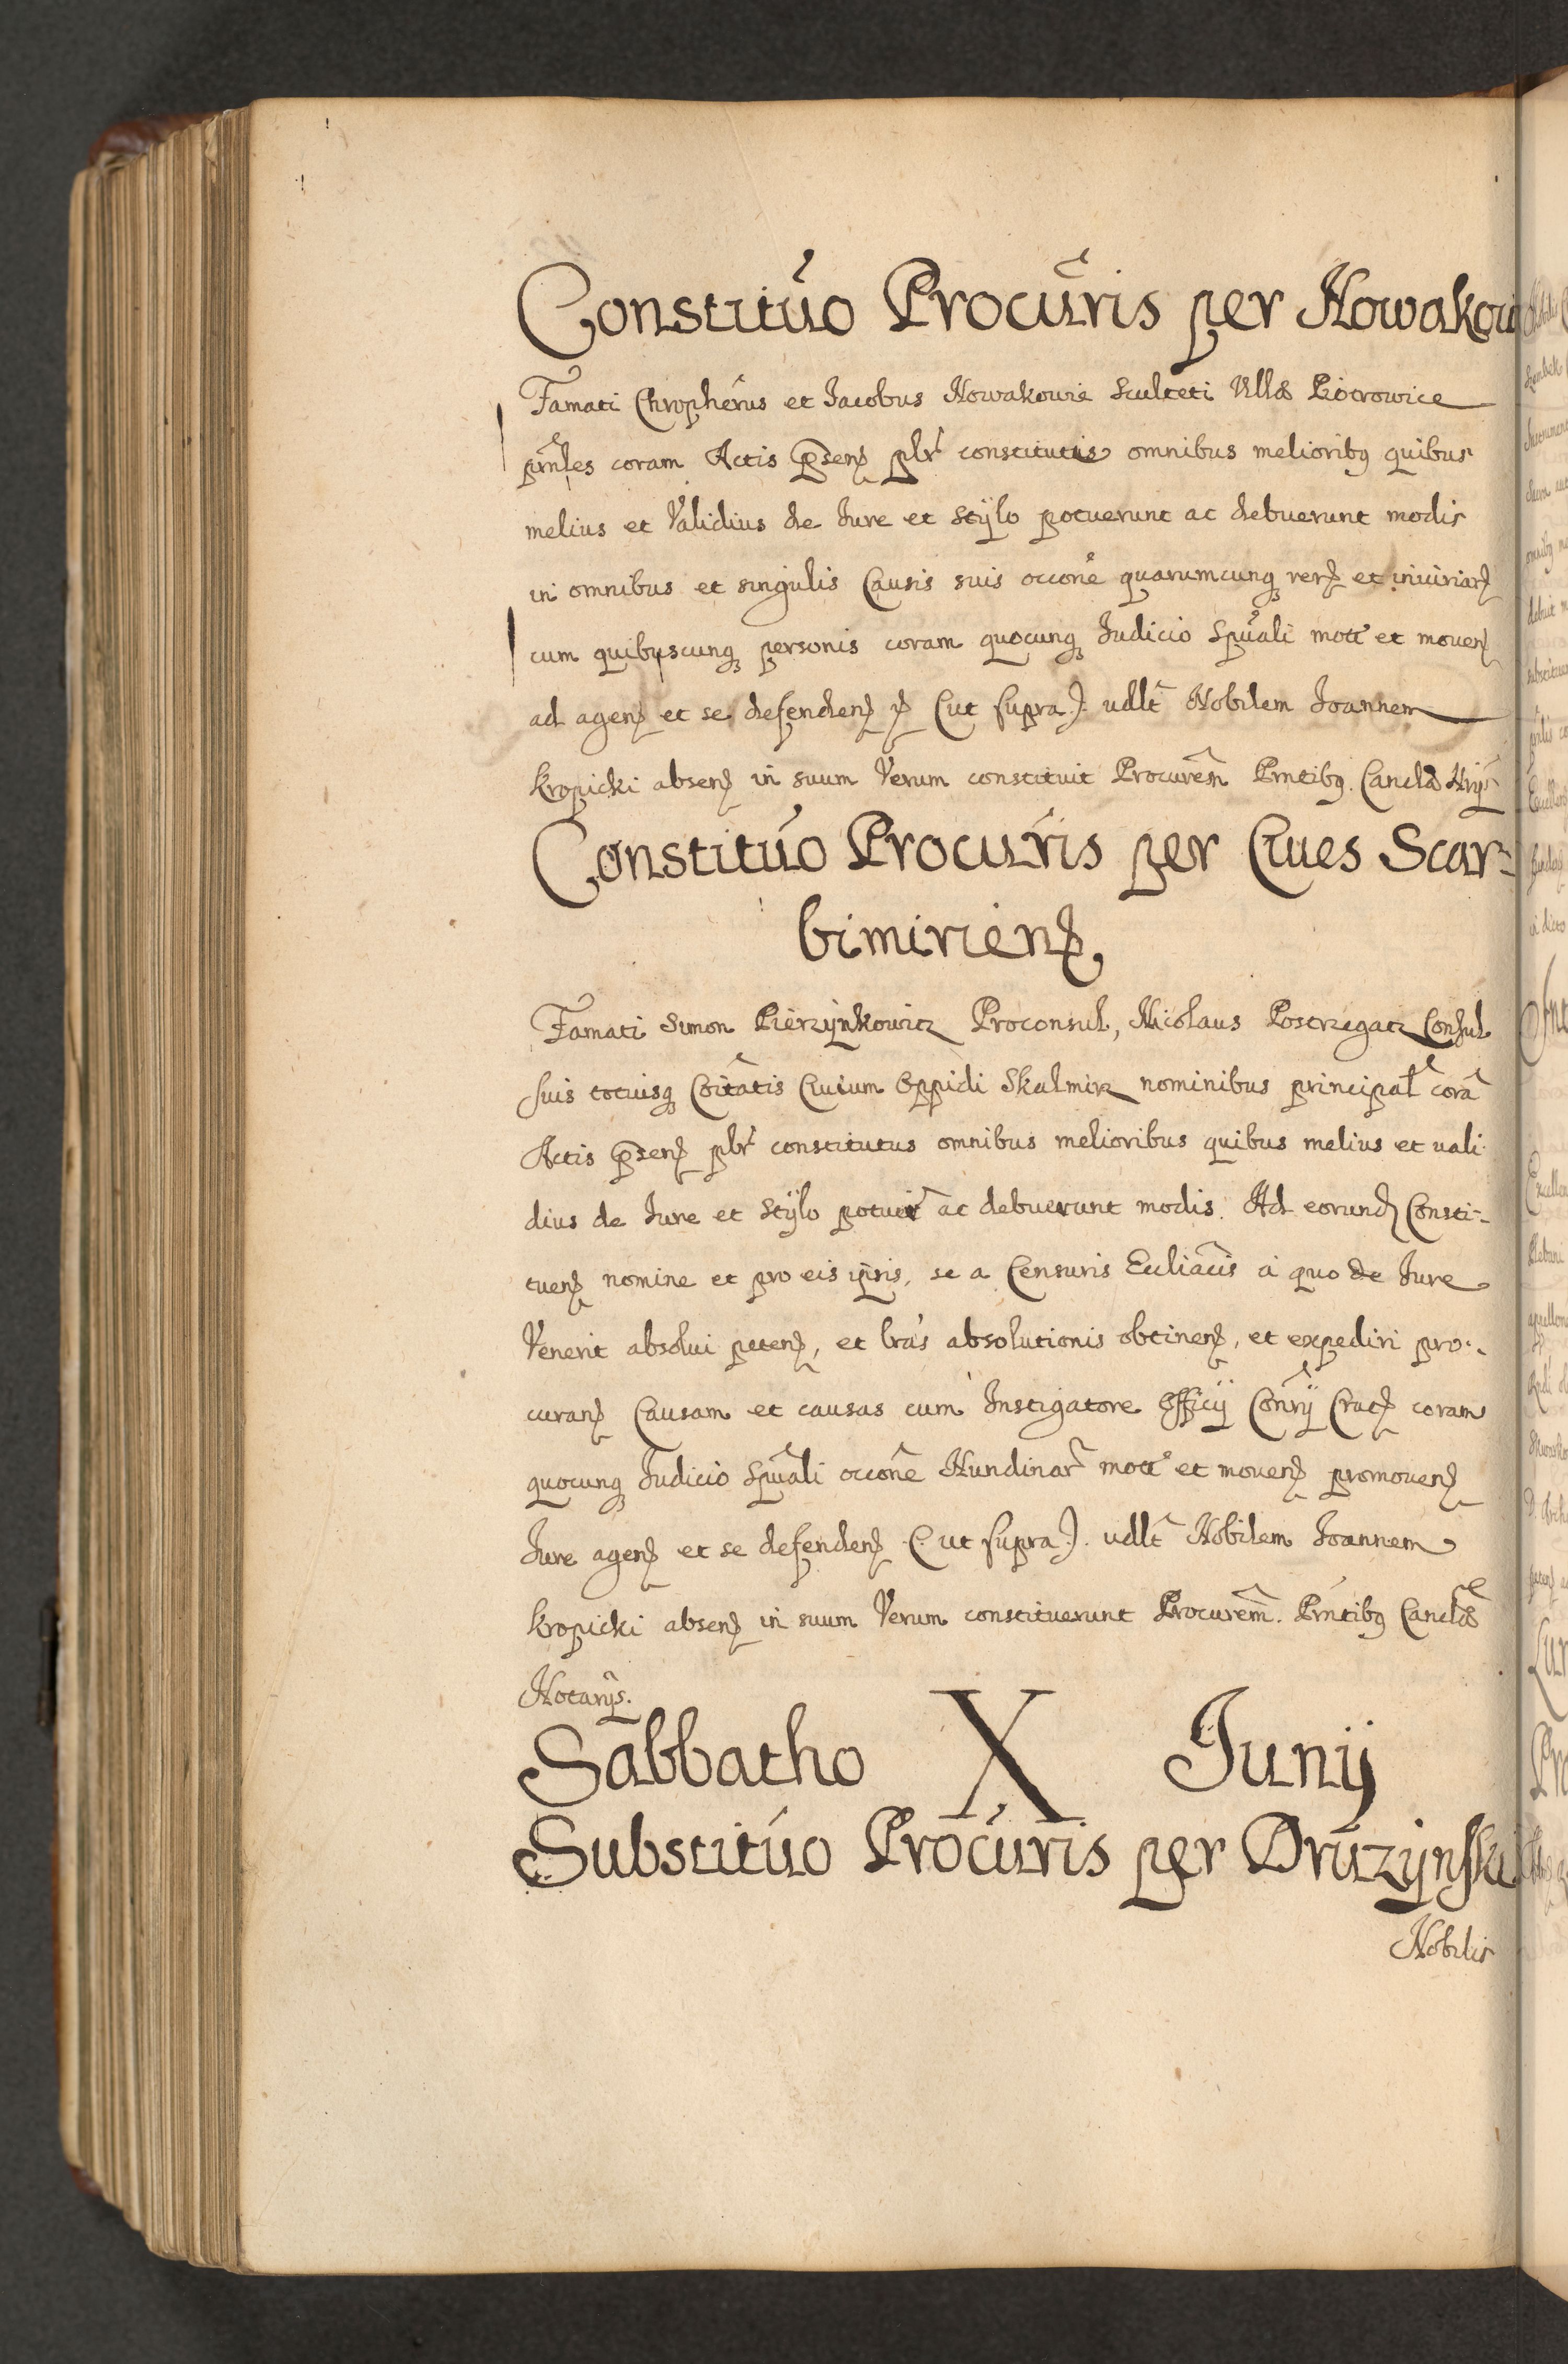 Constitũo Procũris per Nowakow
Famati Chrophẽrus et Jacobus Nowakowie Sculteti Villæ Piotrowice
prnles coram Actis p̃senꝫ plr̃ constitutis omnibus melioribꝫ quibus
melius et Validius de Jure et Stÿlo potuerunt ac debuerunt modis
in omnibus et singulis Causis suis occõne quarumcunqꝫ rerꝫ et iniuriarꝫ
cum quibuscunqꝫ personis coram quocunqꝫ Judicio Spũali mott̃ et mouenꝫ
ad agenꝫ et se defendenꝫ (ut supra). udlt̃ Nobilem Joannem
Kropicki absenꝫ in suum Verum constituit Procurem̃ Prntibꝫ Canclæ Nrijs
Constitũo Procũris per Ciues Scar-
bimirienꝫ
Famati Simon Pierzÿnkowicz Proconsul, Nicolaus Postrzegacz Consul
suis totiusqꝫ Cõitatis Ciuium Oppidi Skalmirz nominibus principal̃ corã
Actis p̃senꝫ plr̃ constitutus omnibus melioribus quibus melius et uali
dius de Jure et Stÿlo potuer̃ ac debuerunt modis. Ad eorundꝫ Consti-
tuenꝫ nomine et pro eis ipsis, se a Censuris Eccliãcis a quo de Jure
Venerit absolui petenꝫ, et lrã̃s absolutionis obtinenꝫ, et expediri pro-
curanꝫ Causam et causas cum Instigatore Officÿ Conr̃ÿ Cracꝫ coram
quocunqꝫ Judicio Spũali occõne Nundinar̃ mott̃ et mouenꝫ promouenꝫ
Jure agenꝫ et se defendenꝫ (ut supra). udlt̃ Nobilem Joannem
Kropicki absenꝫ in suum Verum constituerunt Procurem̃. Prñtibꝫ Canclæ
Notarÿs.
Sabbatho X Junij
Substitũo Procũris per Druzÿnski
Nobilis